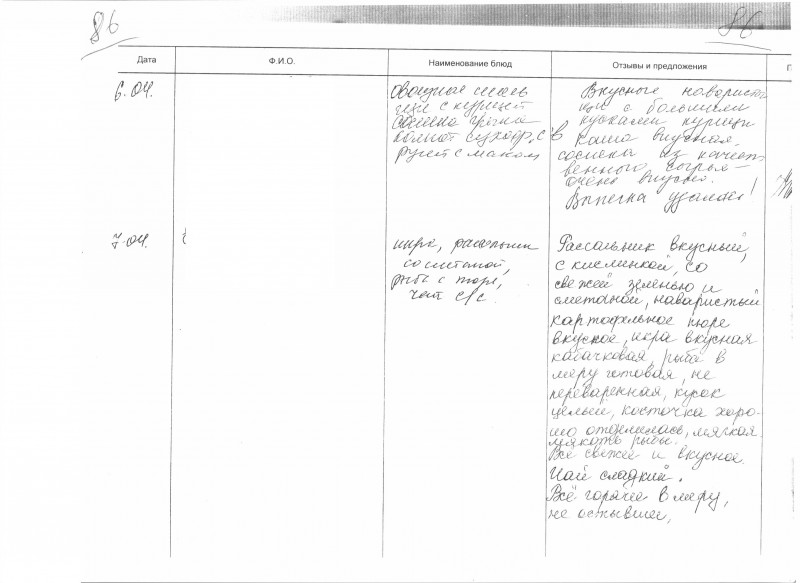 86
86
Дата
Ф.И.О.
Наименование блюд
Отзывы и предложения
6.04.
с курицей
сосиска греча
компот сухофр. с
рулет с маком
Вкусные наваристые
щи с большими
кусками курицы
Каша вкусная,
сосиска из качест
венного сырья –
очень вкусно.
Выпечка удалась!
7.04.
икра, рассольник
со сметаной,
рыба с пюре,
чай с/с.
Рассольник вкусный,
с кислинкой, со
свежей зеленью и
сметаной, наваристый
картофельное пюре
вкусное, икра вкусная
кабачковая, рыба в
меру готовая, не
переваренная, кусок
целый, косточка хоро-
шо отделилась, мягкая
мякоть рыбы.
Всё свежее и вкусное.
Чай сладкий.
Всё горячее в меру,
не остывшее,